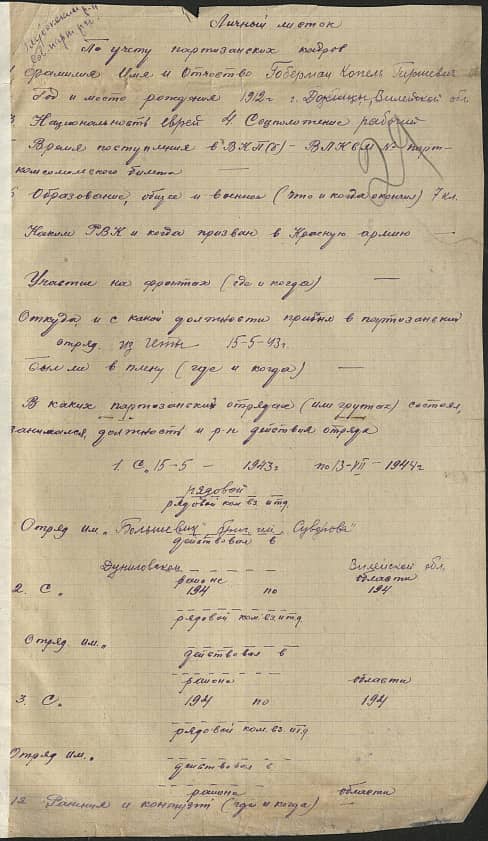 Личный листок
По учету партизанских кадров
Фамилия Имя и Отчество Гоберман Копель Гиршевич
Год и место рождения 1912 г. г. Докшицы, Вилейской обл.
3 Национальность еврей 4. Соцположение рабочий
29
Время поступления в ВКП(б) - ВЛКСМ № парт-
комсомольского билета —
6 Образование, общее и военное (что и когда окончил) 7 кл.
Каким РВК и когда призван в Красную армию —
Участие на фронтах (где и когда) —
Откуда и с какой должности прибыл в партизанский
отряд из гетто 15-5-43 г.
Был ли в плену (где и когда) —
В каких партизанских отрядах (или группах) состоял,
занимался, должность и р-н действия отряда
1. С. 15-5 - 1943 г. по 13-VII - 1944 г
рядовой
рядовой ком. вз. итд
Отряд им. „Большевик" бриг. им. Суворова
действовал в
Дуниловском Вилейской обл.
районе области
2. С. 194 по 194
рядовой ком. вз. итд
Отряд им. „
действовал в
района области
3. С. 194 по 194
рядовой ком. вз. итд
Отряд им. „
действовал в
района области
12 Ранения и контузии (где и когда) —